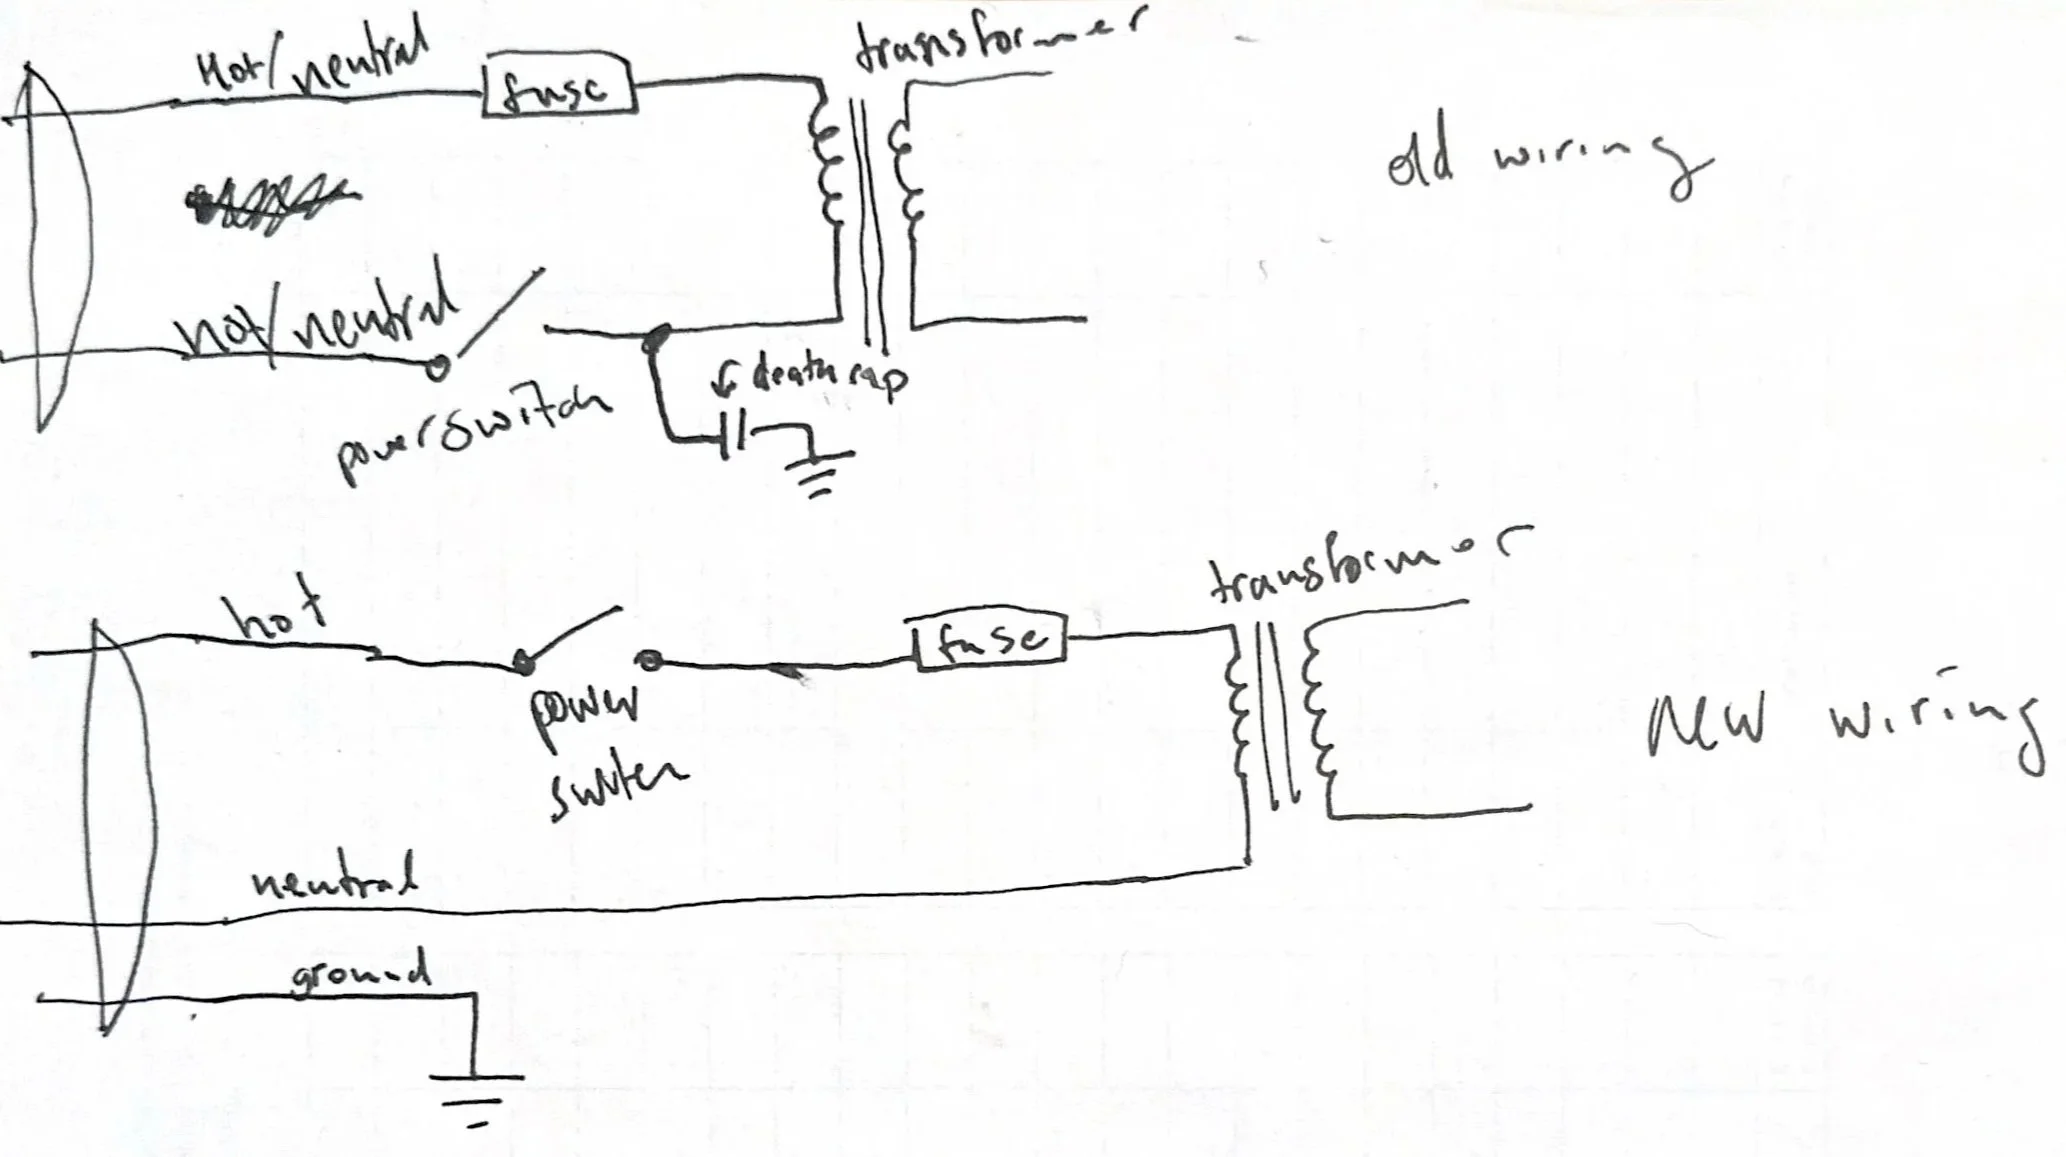 transformer
Hot/neutral
fuse
old wiring
hot/neutral
death cap
power switch
transformer
hot
fuse
power
switch
new wiring
neutral
ground